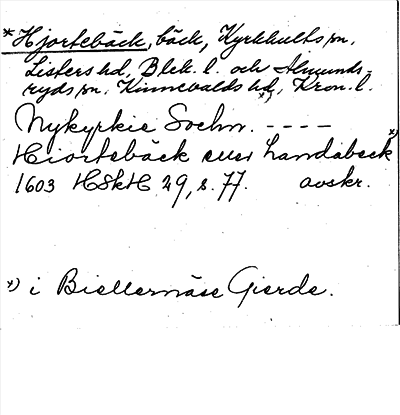 *Hjortebäck, bäck, Kyrkhults sn,
Listers hd, Blek. l. och Almunds-
ryds sn, Kinnevalds hd, Kron. l.
Nykyrkie Sochn. - - - -
Hiortebäck eller Landabeck *)
1603 HSkH 29, s. 77. avskr.
*) i Biellernäse Gierde.